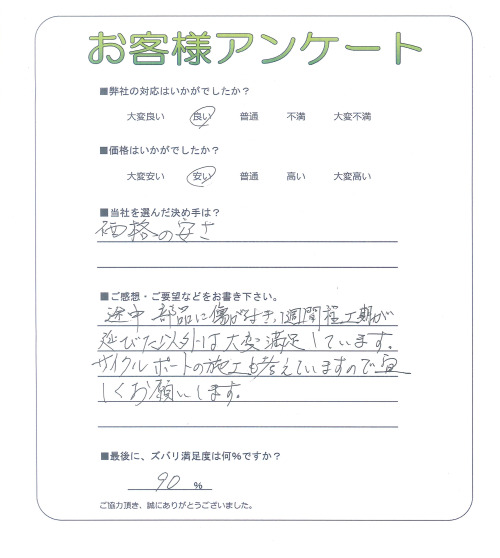 お客様アンケート
■弊社の対応はいかがでしたか？
大変良い 良い 普通 不満 大変不満
■価格はいかがでしたか？
大変安い 安い 普通 高い 大変高い
■当社を選んだ決め手は？
価格の安さ
■ご感想・ご要望などをお書き下さい。
途中部品に傷が付き、1週間程工期が
延びた以外は大変満足しています。
サイクルポートの施工も考えていますので宜
しくお願いします。
■最後に、ズバリ満足度は何％ですか？
90 ％
ご協力頂き、誠にありがとうございました。